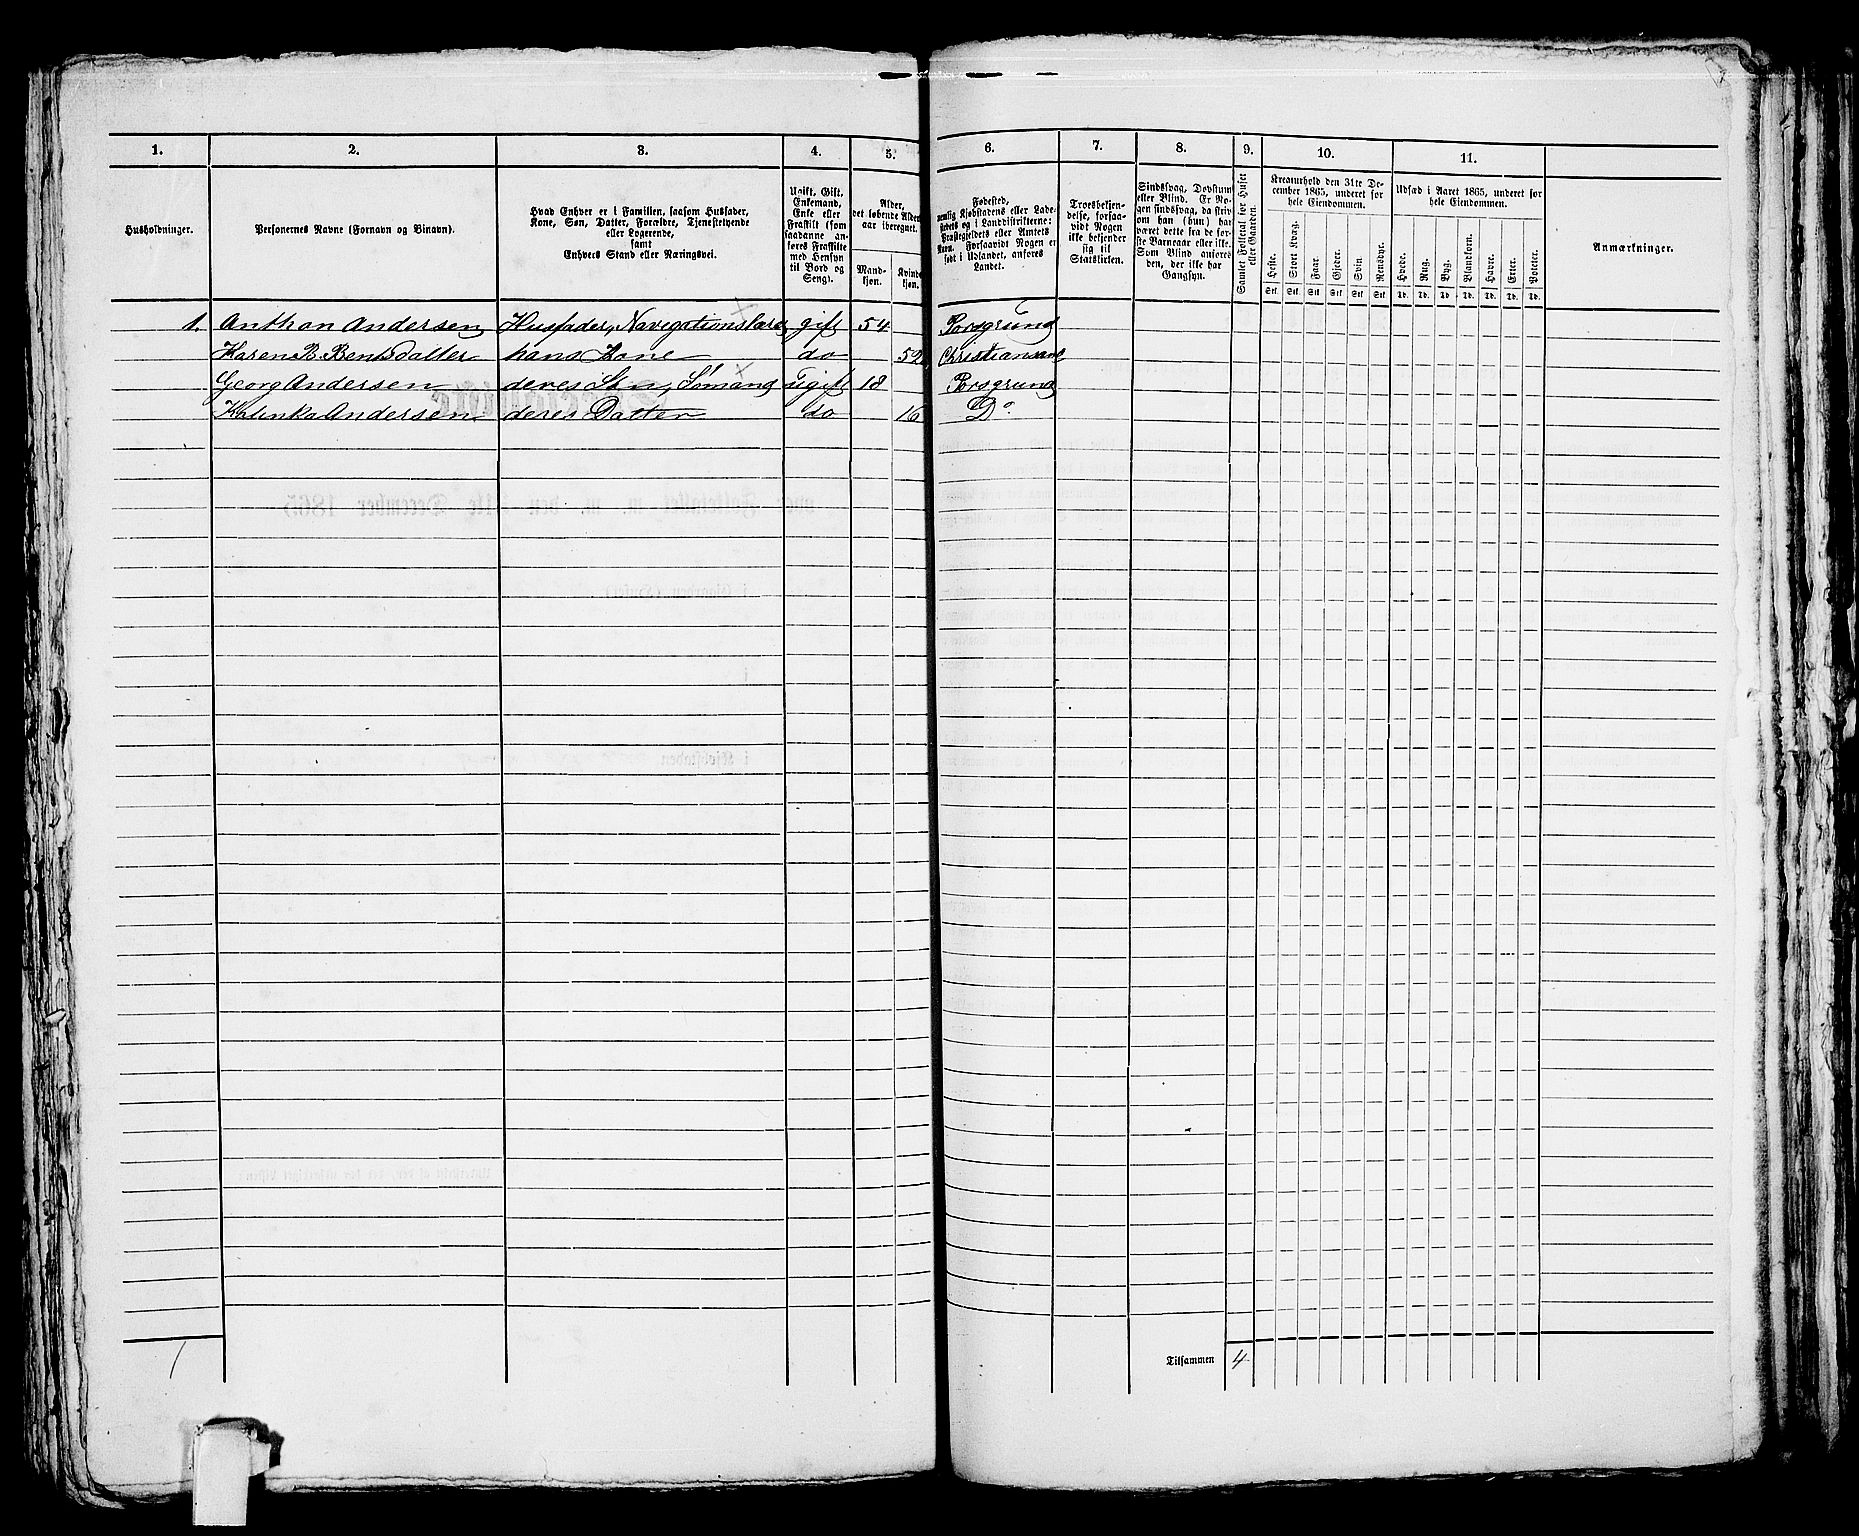 1. 2. 3. 4. 5. 6. 7. 8. 9. 10. 11.
Husholdninger.
Personernes Navne (Fornavn og Binavn).
Hvad Enhver er i Familien, saasom Husfader,
Kone, Søn, Datter, Forældre, Tjenestetyende
eller Logerende,
samt
Enhvers Stand eller Næringsvei.
Ugift, Gift,
Enkemand,
Enke eller
Fraskilt (som
saadanne an-
føres Fraskilte
med Hensyn
til Bord og
Seng).
Alder,
det løbende Alders-
aar iberegnet.
Mand-
kjøn.
Kvinde-
kjøn.
Fødested,
nemlig Kjøbstadens eller Lade-
stedets og i Landdistrikterne:
Præstegjeldets eller Amtets
Navn. Forsaavidt Nogen er
født i Udlandet, anføres
Landet.
Troesbekjen-
delse, forsaa-
vidt Nogen
ikke bekjender
sig til
Statskirken.
Sindssvag, Døvstum
eller Blind. Er No-
gen sindssvag, da skriv
om han (hun) har
været dette fra de før-
ste Barneaar eller ikke.
Som Blind anføres
den, der ikke har
Gangsyn.
Samlet Folketal for Huset
eller Gaarden.
Kreaturhold den 31te De-
cember 1865, underet for
hele Eiendommen.
Heste. Stort Kvæg. Faar. Gjeder. Svin. Rensdyr.
Stk. Stk. Stk. Stk. Stk. Stk.
Udsæd i Aaret 1865, underet for
hele Eiendommen.
Hvede. Rug. Byg. Blandkorn. Havre. Erter. Poteter.
Td. Td. Td. Td. Td. Td. Td.
Anmærkninger.
1. Anthon Andersen Husfader, Navegationslærer gift 54 Porsgrund
Karen B. Bentsdatter hans Kone do 52 Christiansand
Georg Andersen deres Søn, Sømand ugift 18 Porsgrund
Kalinka Andersen deres Datter do 16 Do.
1
Tilsammen 4